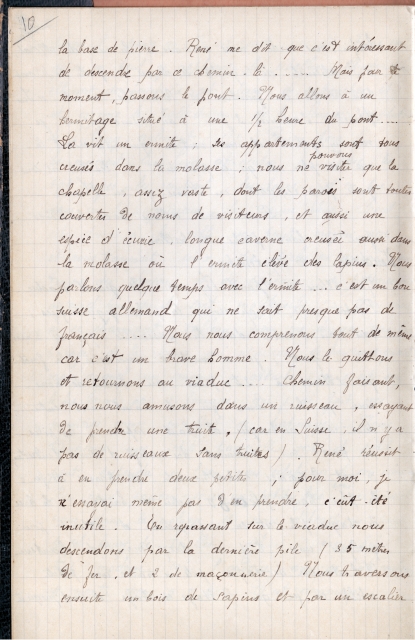 10
la base de pierre. René me dit que c'est intéressant
de descendre par ce chemin-là ..... Mais pour le
moment, passons le pont. Nous allons à un
hermitage situé à une 1/2 heure du pont ....
Là vit un ermite ; ses appartements sont tous
creusés dans la molasse ; nous ne pouvons visiter que la
chapelle, assez vaste, dont les parois sont toutes
couvertes de noms de visiteurs, et aussi une
espèce d'écurie, longue caverne creusée aussi dans
la molasse où l'ermite élève des lapins. Nous
parlons quelque temps avec l'ermite ... c'est un bon
suisse allemand qui ne sait presque pas de
français .... Mais nous comprenons tout de même
car c'est un brave homme. Nous le quittons
et retournons au viaduc .... Chemin faisant,
nous nous amusons dans un ruisseau, essayant
de prendre une truite, (car en Suisse, il n'y a
pas de ruisseaux sans truites). René réussit
à en prendre deux petites ; pour moi, je
n'essayai même pas d'en prendre, c'eût été
inutile. En repassant sur le viaduc nous
descendons par la dernière pile (35 mètres
de fer, et 2 de maçonnerie) Nous traversons
ensuite un bois de sapins et par un escalier